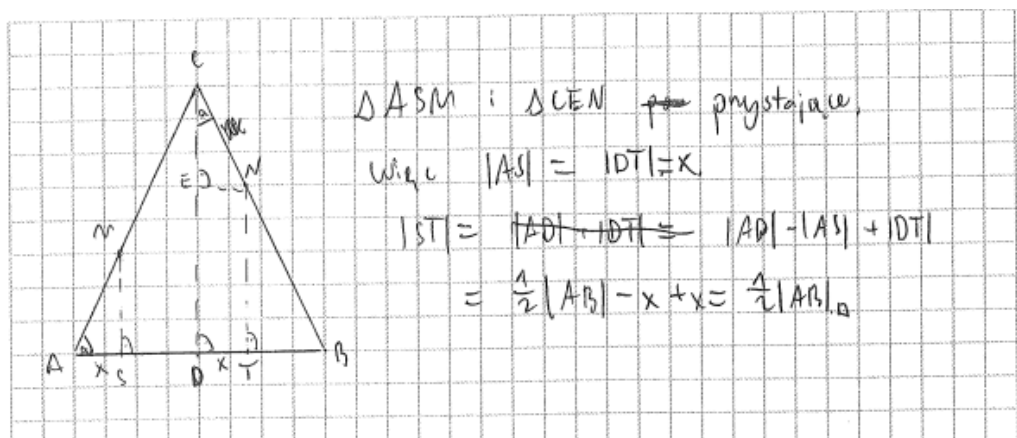 C
a
E
N
M
A
a
x
S
D
x
T
B
ΔASM i ΔCEN przystające,
Więc |AS| = |DT|=x
|ST| = |AD| - |AS| + |DT|
= 1/2 |AB| - x + x = 1/2 |AB|.□